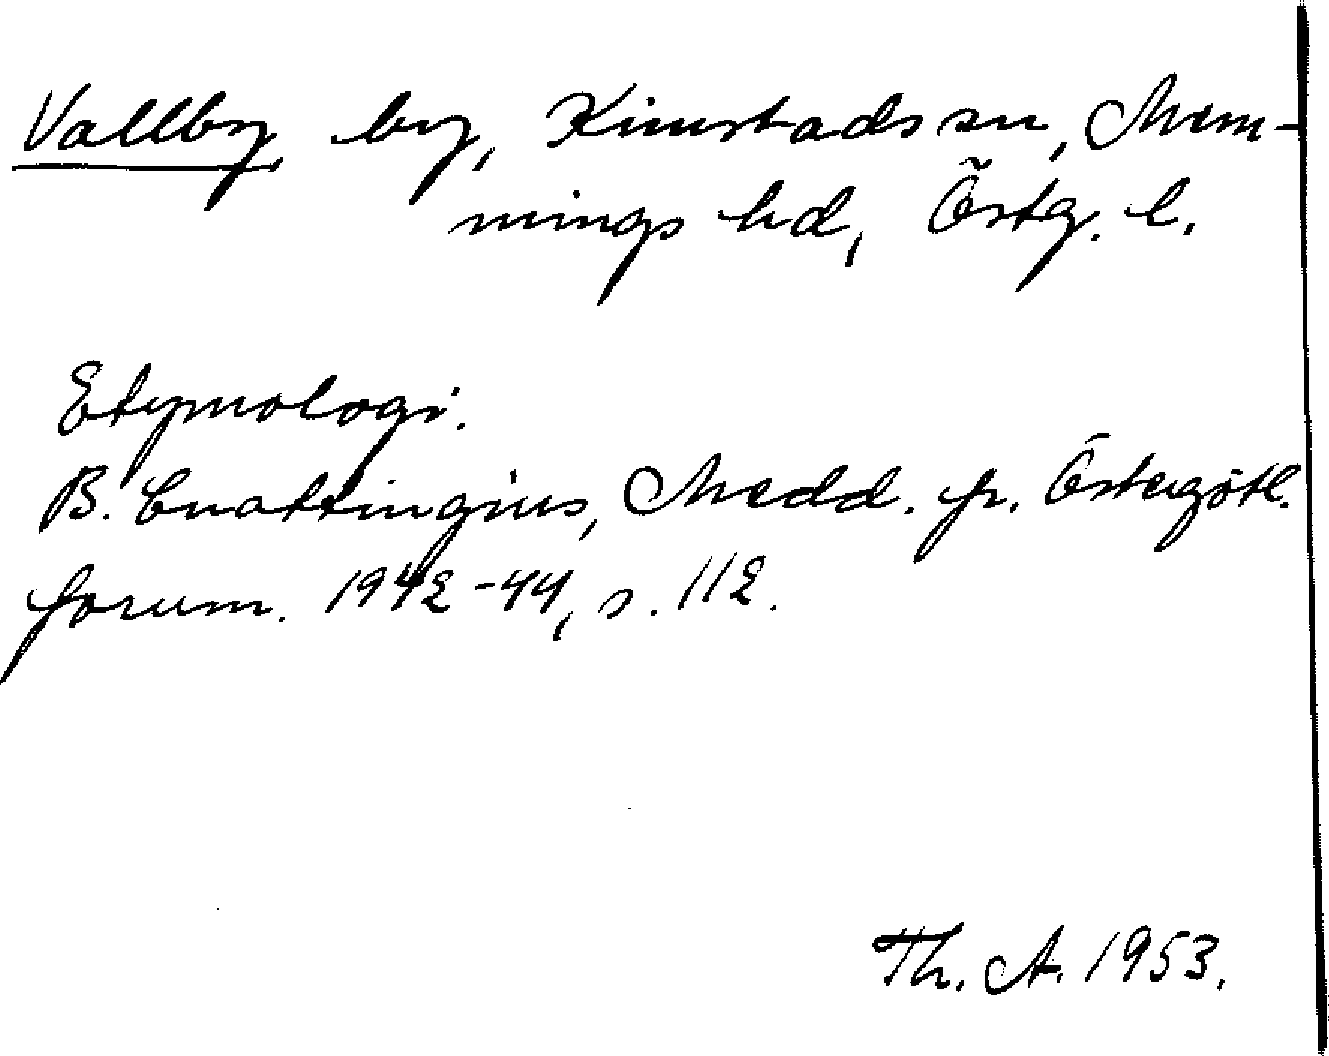 Vallby, by, Kimstads sn, Mem-
mings hd, Östg. l.
Etymologi.
B. Cnattingius, Medd. fr. Östergötl.
fornm. 1942-44, s. 112.
Th. A. 1953.